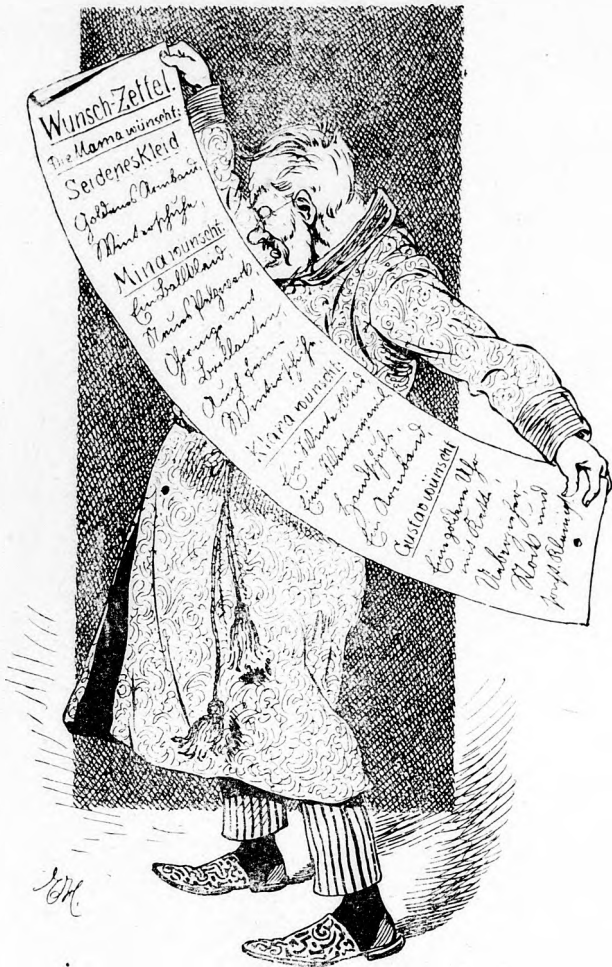 Wunsch-Zettel.
Die Mama wünscht:
Seidenes Kleid
Goldenes Armband
Winterschuhe,
Mina wünscht
Ein Ballkleid.
Neues Pelzwerk
Ohrringe mit
Brillanten
Auch feine
Winterschuhe
Klara wünscht
Ein Winterkleid
Einen Wintermantel
Handschuhe
Ein Armband.
Gustav wünscht
Eine goldene Uhr
mit Kette!
Ueberzieher
Stock und